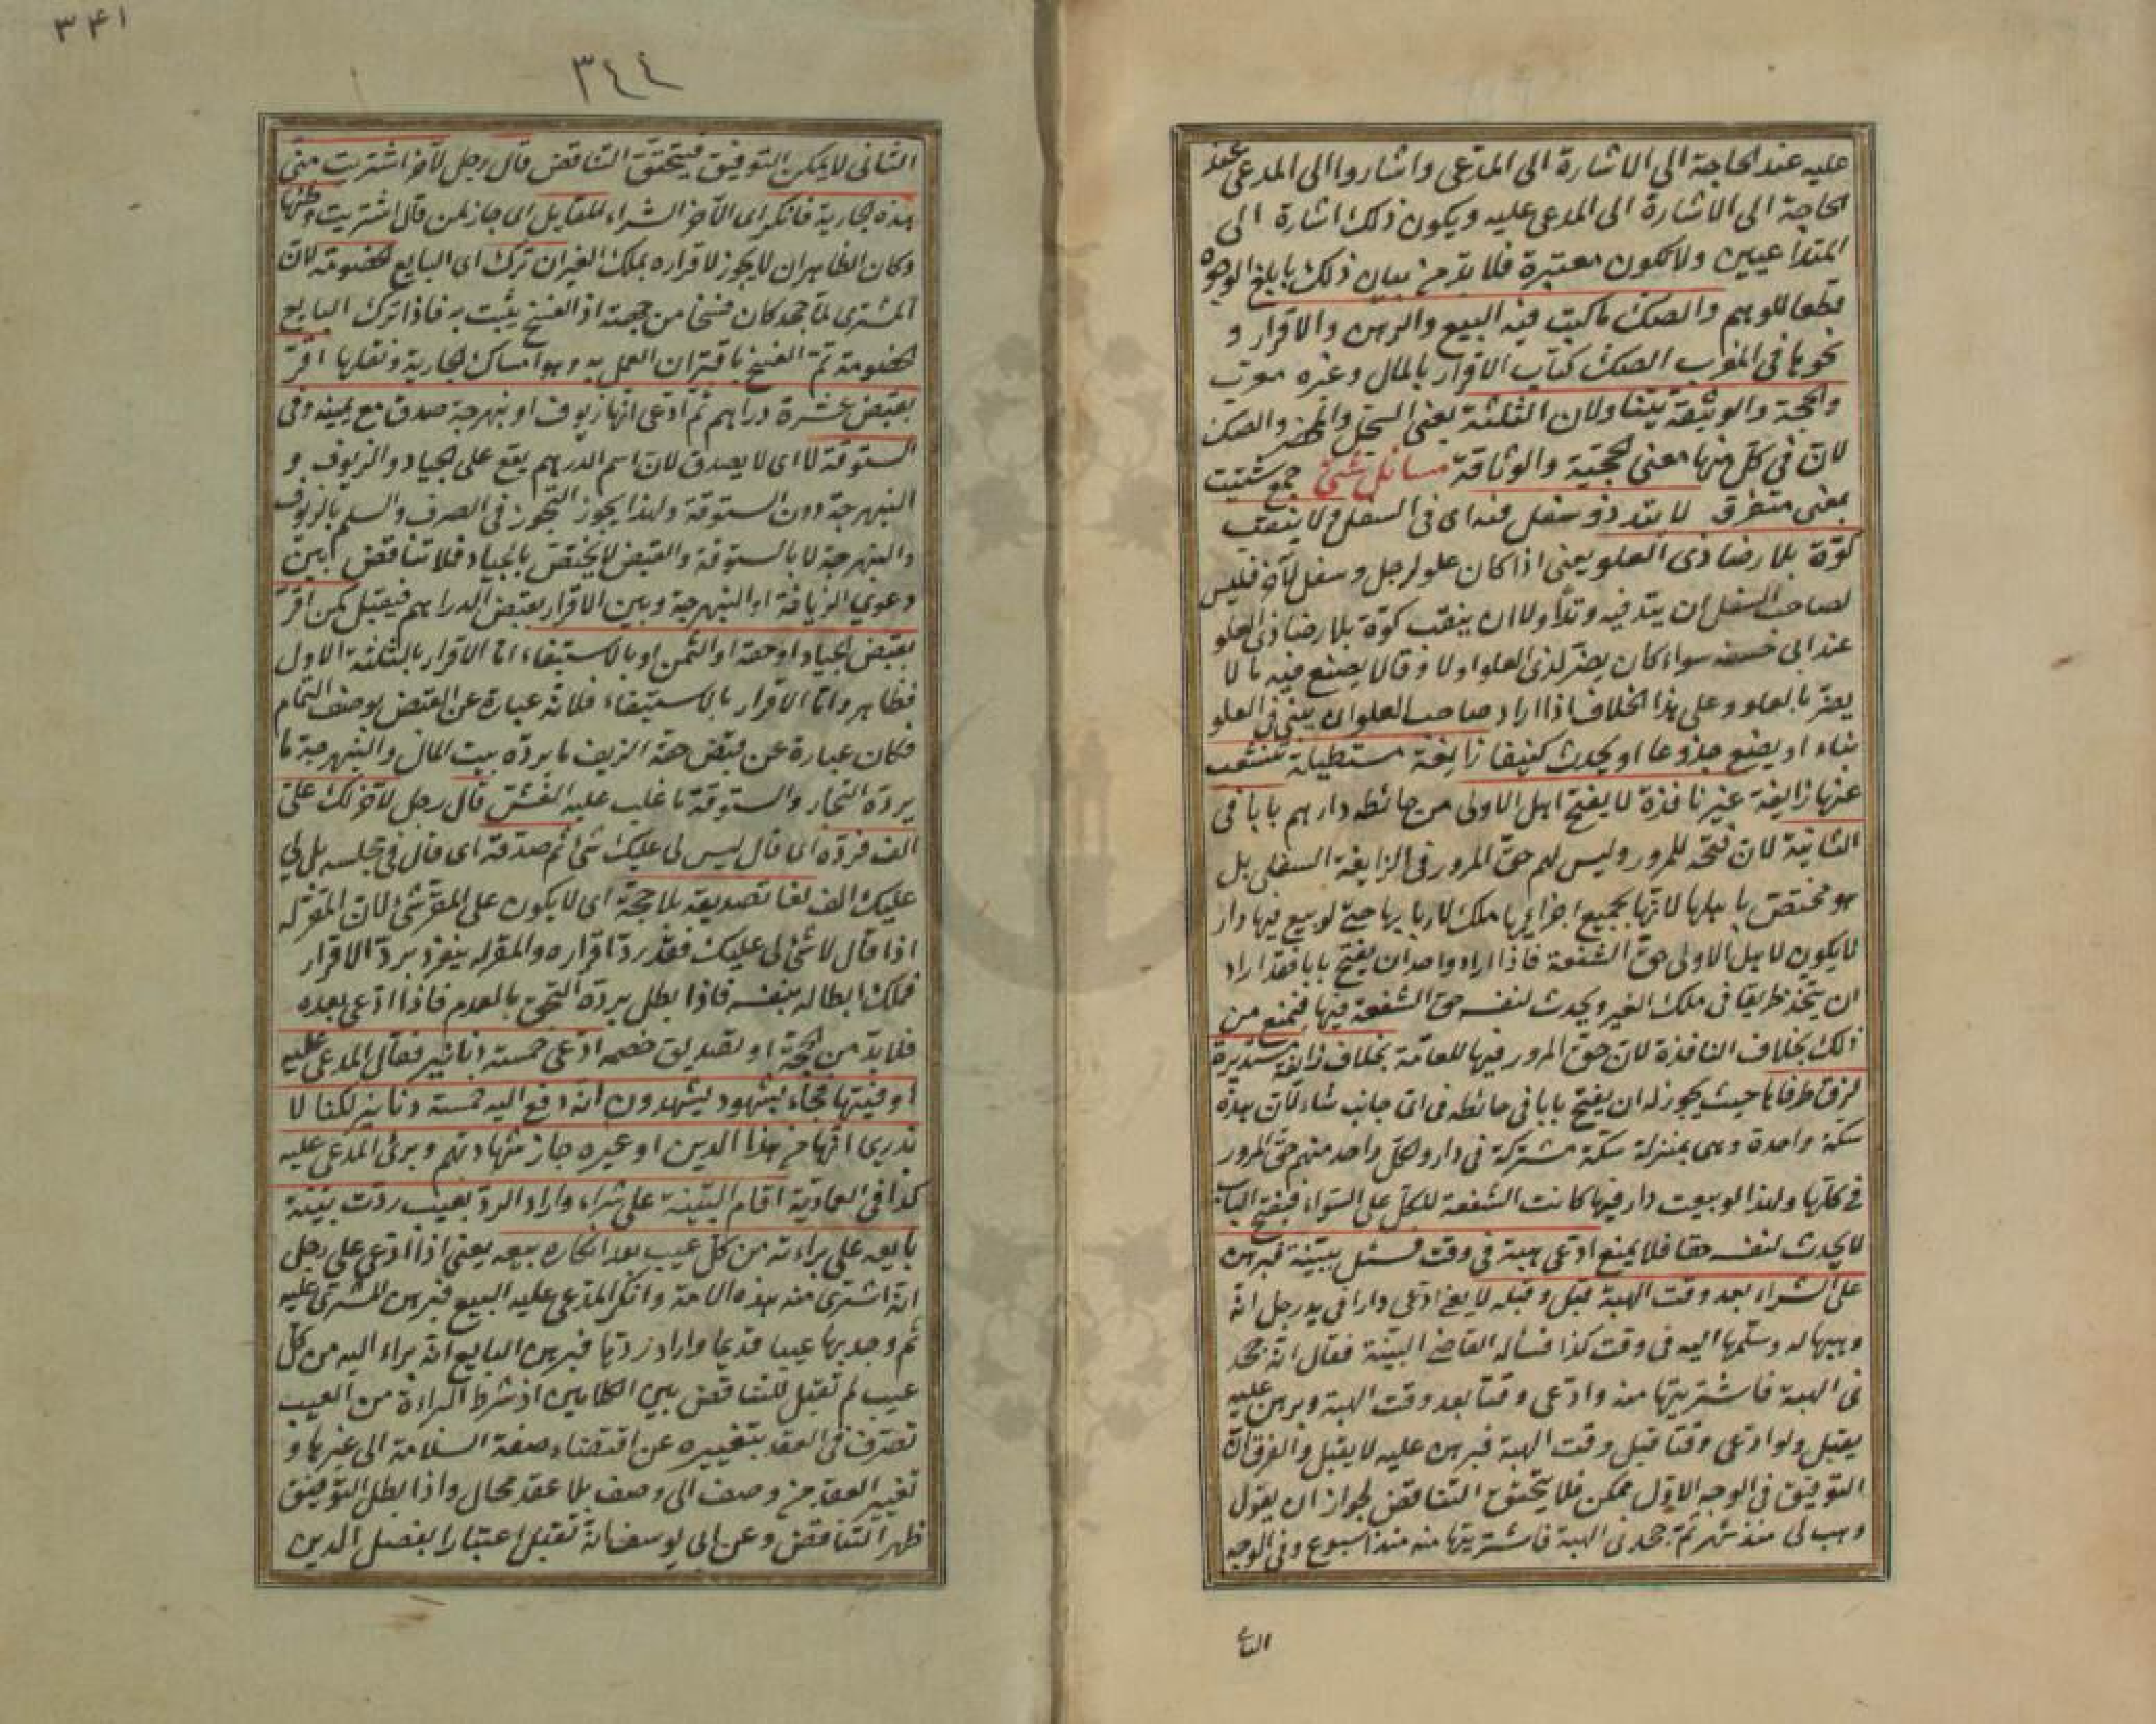 عليه عند الحاجة الى الاشارة الى المدعى واشاروا الى المدعى عند
الحاجة الى الاشارة الى المدعى عليه ويكون ذلك اشارة الى
المتداعيين ولا تكون معتبرة فلا بد من بيان ذلك بابلغ الوجوه
قطعا للوهم والصك ما كتب فيه البيع والرهن والاقرار و
نحوها فى المغرب الصك كتاب الاقرار بالمال وغيره معرب
والحجة والوثيقة يتناولان الثلثة يعنى السجل والمحضر والصك
لان فى كل منها معنى الحجية والوثاقة مسائل شتى جمع شتيت
بمعنى متفرق لا يتد ذو سفل فيه اى فى السفل ولا ينقب
كوة بلا رضا ذى العلو يعنى اذا كان علو لرجل وسفل لآخر فليس
لصاحب السفل ان يتد فيه وتدا ولا ان ينقب كوة بلا رضا ذى العلو
عند ابى حنيفه سواء كان يضر لذى العلو اولا وقالا يصنع فيه ما لا
يضر بالعلو وعلى هذا الخلاف اذا اراد صاحب العلو ان يبنى فى العلو
بناء او يضع جذوعا او يحدث كنيفا زايغة مستطيلة تنشعب
عنها زايغة غير نافذة لا يفتح اهل الاولى من حائط دارهم بابا فى
الثانية لان فتحه للمرور وليس لهم حق المرور فى الزايغة السفلى بل
هو مختص باهلها لانها بجميع اجزائها ملك لاربابها حتى لو بيع فيها دار
لا يكون لاهل الاولى حق الشفعة فاذا اراد واحد ان يفتح بابا فقد اراد
ان يتخذ طريقا فى ملك الغير ويحدث لنفسه حق الشفعة فيها فيمنع من
ذلك بخلاف النافذة لان حق المرور فيها للعامة بخلاف زائغة مستديرة
لزق طرفاها حيث يجوز له ان يفتح بابا فى حائطه فى اى جانب شاء لان هذه
سكة واحدة وهى بمنزلة سكة مشتركة فى دار ولكل واحد منهم حق المرور
فى كلها ولهذا لو بيعت دار فيها كانت الشفعة للكل على السواء فبفتح الباب
لا يحدث لنفسه حقا فلا يمنع ادعى هبة فى وقت فسئل ببينة فبرهن
على الشراء بعد وقت الهبة قبل وقبله لا يعنى ادعى دارا فى يد رجل انه
وهبها له وسلمها اليه فى وقت كذا فسأله القاضى البينة فقال انه جحد
نى الهبة فاشتريتها منه وادعى وقتا بعد وقت الهبة وبرهن عليه
يقبل ولو ادعى وقتا قبل وقت الهبة فبرهن عليه لا يقبل والفرق ان
التوفيق فى الوجه الاول ممكن فلا يتحقق التناقض لجواز ان يقول
وهب لى منذ شهر ثم جحدنى الهبة فاشتريتها منه منذ اسبوع وفى الوجه
الثانى
٣٤١
٣٤٤
الثانى لا يمكن التوفيق فيتحقق التناقض قال رجل لآخر اشتريت منى
هذه الجارية فانكر اى الآخر الشراء للقايل اى جاز لمن قال اشتريت وطئها
وكان الظاهر ان لا يجوز لاقراره بملك الغير ان ترك اى البايع الخصومة لان
المشترى لما جحد كان فسخا من جهته اذ الفسخ يثبت به فاذا ترك البايع
الخصومة تم الفسخ باقتران العمل به وهو امساك الجارية ونقلها اقر
بقبض عشرة دراهم ثم ادعى انها زيوف او نبهرجة صدق مع يمينه وفى
الستوقة لا اى لا يصدق لان اسم الدراهم يقع على الجياد والزيوف و
النبهرجة دون الستوقة ولهذا يجوز التجوز فى الصرف والسلم بالزيوف
والنبهرجة لا بالستوقة والقبض لا يختص بالجياد فلا تناقض بين
دعوى الزيافة او النبهرجة وبين الاقرار بقبض الدراهم فيقبل كمن اقر
بقبض الجياد او حقه او الثمن او بالاستيفاء اما الاقرار بالثلثة الاول
فظاهر واما الاقرار بالاستيفاء فلانه عبارة عن القبض بوصف التمام
فكان عبارة عن قبض حقه الزيف ما يرده بيت المال والنبهرجة ما
يرده التجار والستوقة ما غلب عليه الغش قال رجل لآخر لك على
الف فرده اى قال ليس لى عليك شئ ثم صدقه اى قال فى مجلسه بل لى
عليك الف لغا تصديقه بلا حجة اى لا يكون على المقر شئ لان المقر له
اذا قال لا شئ لى عليك فقد رد اقراره والمقر له ينفرد برد الاقرار
فملك ابطاله بنفسه فاذا بطل برده التحق بالعدم فاذا ادعى بعده
فلا بد من الحجة او تصديق خصمه ادعى خمسة دنانير فقال المدعى عليه
اوفيتها فجاء بشهود يشهدون انه دفع اليه خمسة دنانير لكنا لا
ندرى انها من هذا الدين او غيره جاز شهادتهم وبرئ المدعى عليه
كذا فى العمادية اقام البينة على شراء واراد الرد بعيب ردت بينة
بايعه على براءته من كل عيب بعد انكاره بيعه يعنى اذا ادعى على رجل
انه اشترى منه هذه الامة وانكر المدعى عليه البيع فبرهن المشترى عليه
ثم وجد بها عيبا قديما واراد ردها فبرهن البايع انه براء اليه من كل
عيب لم تقبل للتناقض بين الكلامين اذ شرط البراءة من العيب
تصرف فى العقد بتغييره عن اقتضاء صفة السلامة الى غيرها و
تغيير العقد من وصف الى وصف بلا عقد محال واذا بطل التوفيق
ظهر التناقض وعن ابى يوسف انه تقبل اعتبارا بفصل الدين